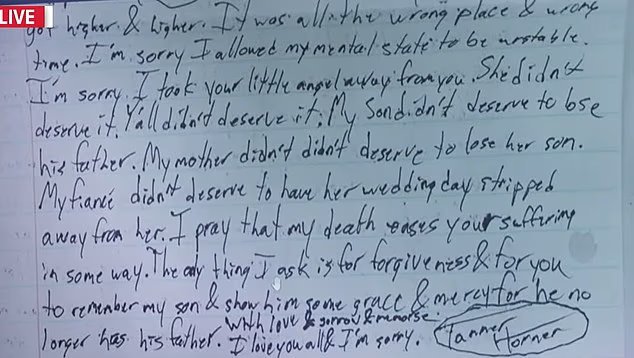 LIVE
got higher & higher. It was all the wrong place & wrong
time. I'm sorry I allowed my mental state to be unstable.
I'm sorry. I took your little angel away from you. She didn't
deserve it. Y'all didn't deserve it. My Son didn't deserve to lose
his father. My mother didn't didn't deserve to lose her son.
My fiancé didn't deserve to have her wedding day stripped
away from her. I pray that my death eases your suffering
in some way. The only thing I ask is for forgiveness & for you
to remember my son & show him some grace & mercy for he no
longer has his father. With love & sorrow & remorse.
I love you all & I'm sorry. Tanner
Horner